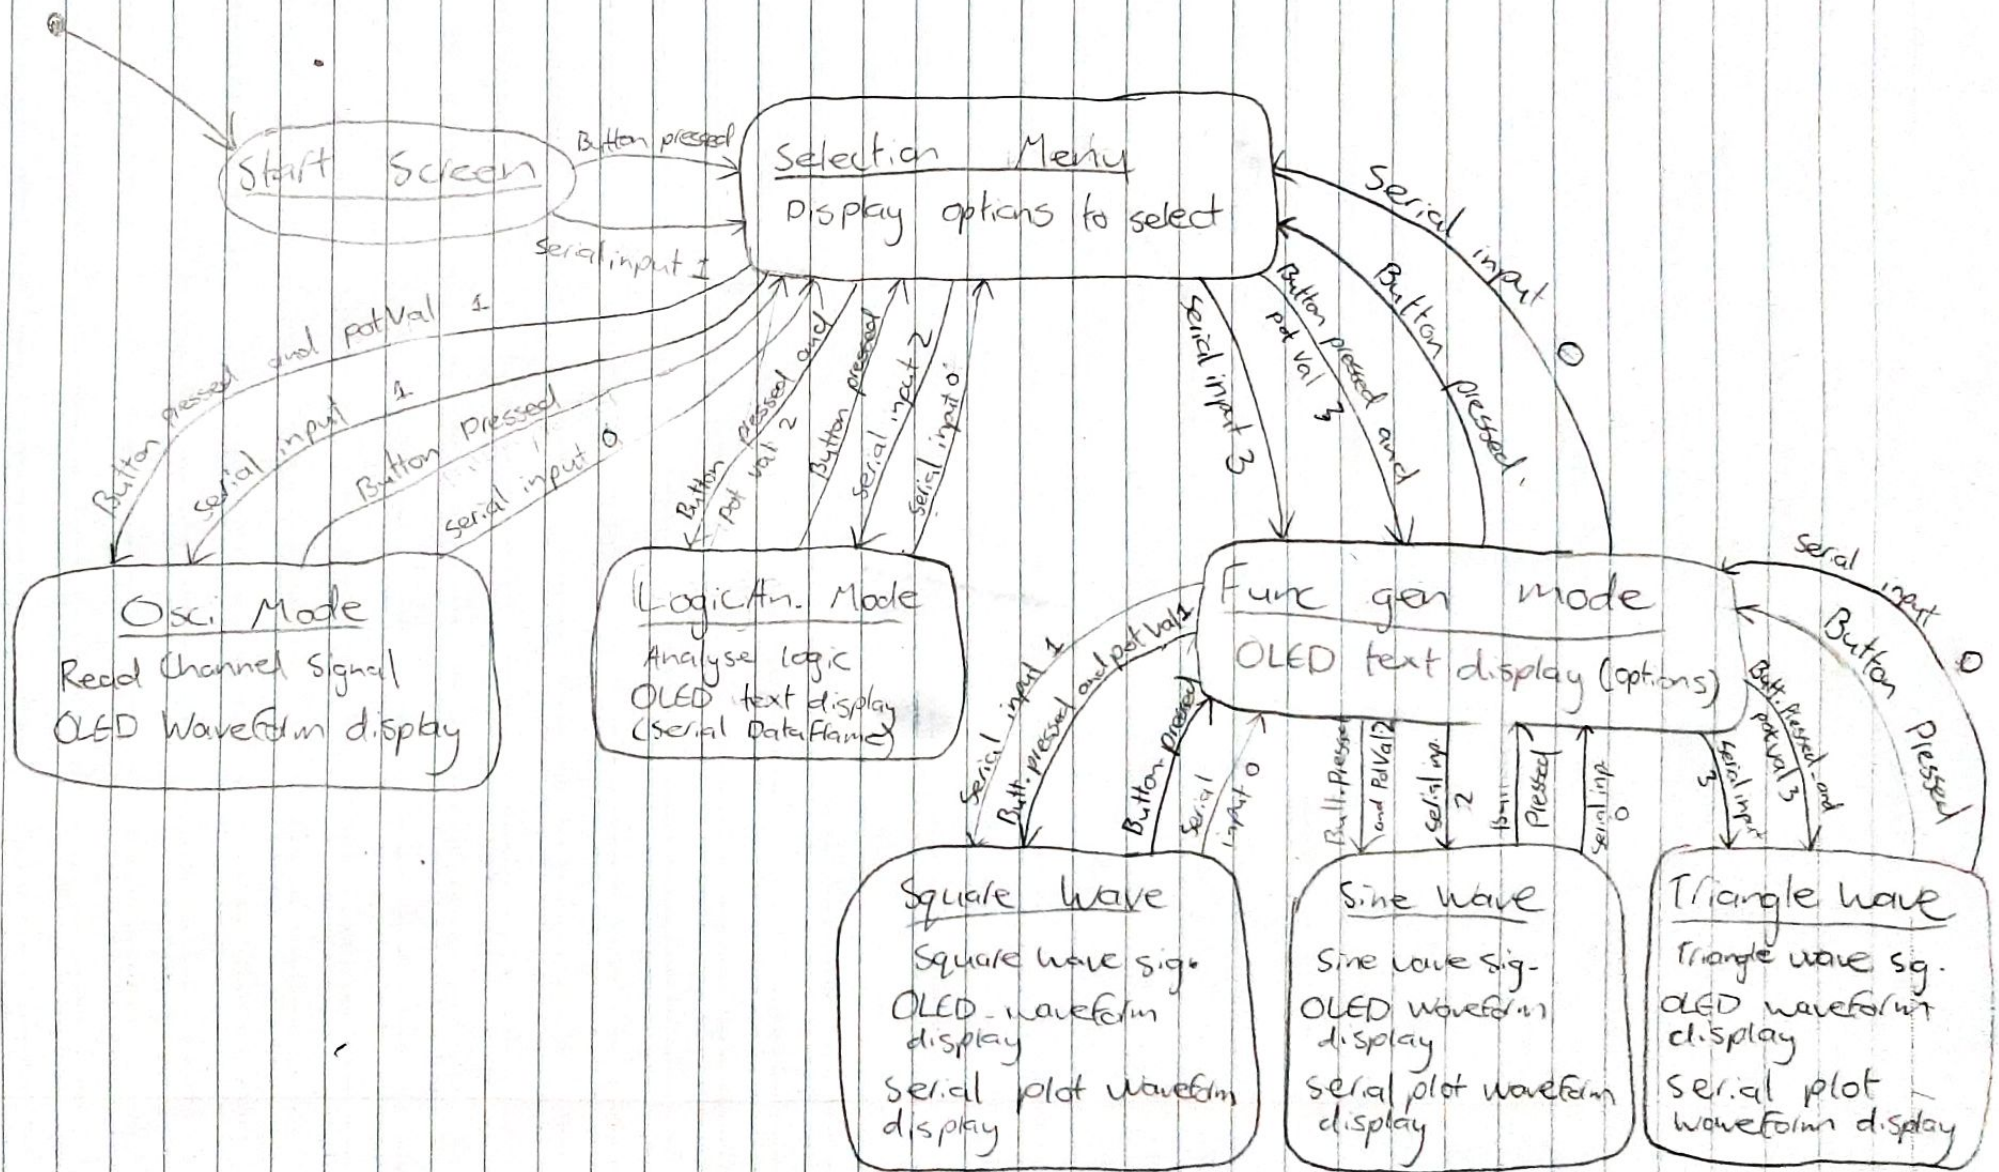 Start Screen
Button pressed
Serial input 1
Selection Menu
Display options to select
Button pressed and potVal 1
Serial input 1
Button pressed
Serial input 0
Button pressed and
pot val 2
Button pressed
Serial input 2
Serial input 0
Serial input 3
Button pressed and
pot val 3
Button pressed.
Serial input 0
Osci Mode
Read Channel Signal
OLED Waveform display
LogicAn. Mode
Analyse logic
OLED text display
(Serial DataFrame)
Func gen mode
OLED text display (options)
Serial input 1
Butt. pressed and potVal 1
Button pressed
Serial
input 0
Butt. Pressed
and PotVal 2
Serial inp.
2
Pressed
Serial inp.
0
Serial input
3
Butt. Pressed and
potval 3
Button Pressed
Serial input 0
Square Wave
Square wave sig.
OLED waveform
display
Serial plot waveform
display
Sine Wave
Sine wave sig.
OLED waveform
display
Serial plot waveform
display
Triangle wave
Triangle wave sig.
OLED waveform
display
Serial plot
waveform display